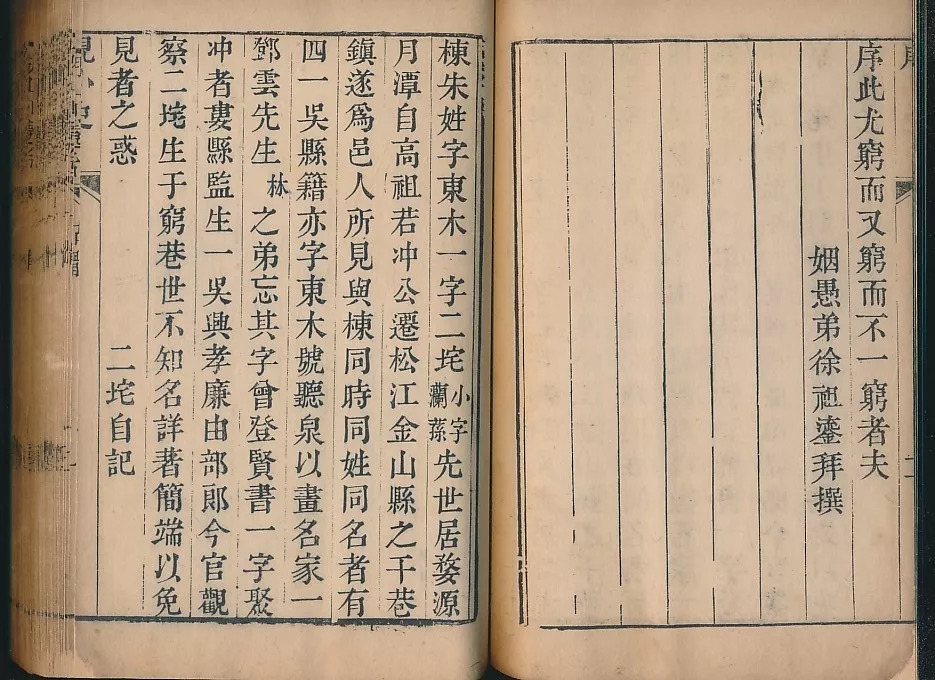 序此尤窮而又窮而不一窮者夫
姻愚弟徐祖鎏拜撰
棟朱姓字東木一字二垞小字蘭蓀先世居婺源
月潭自高祖若冲公遷松江金山縣之干巷
鎮遂爲邑人所見與棟同時同姓同名者有
四一吳縣籍亦字東木號聽泉以畫名家一
鄧雲先生林之弟忘其字曾登賢書一字聚
冲者婁縣監生一吳興孝廉由部郎今官觀
察二垞生于窮巷世不知名詳著簡端以免
見者之惑
二垞自記